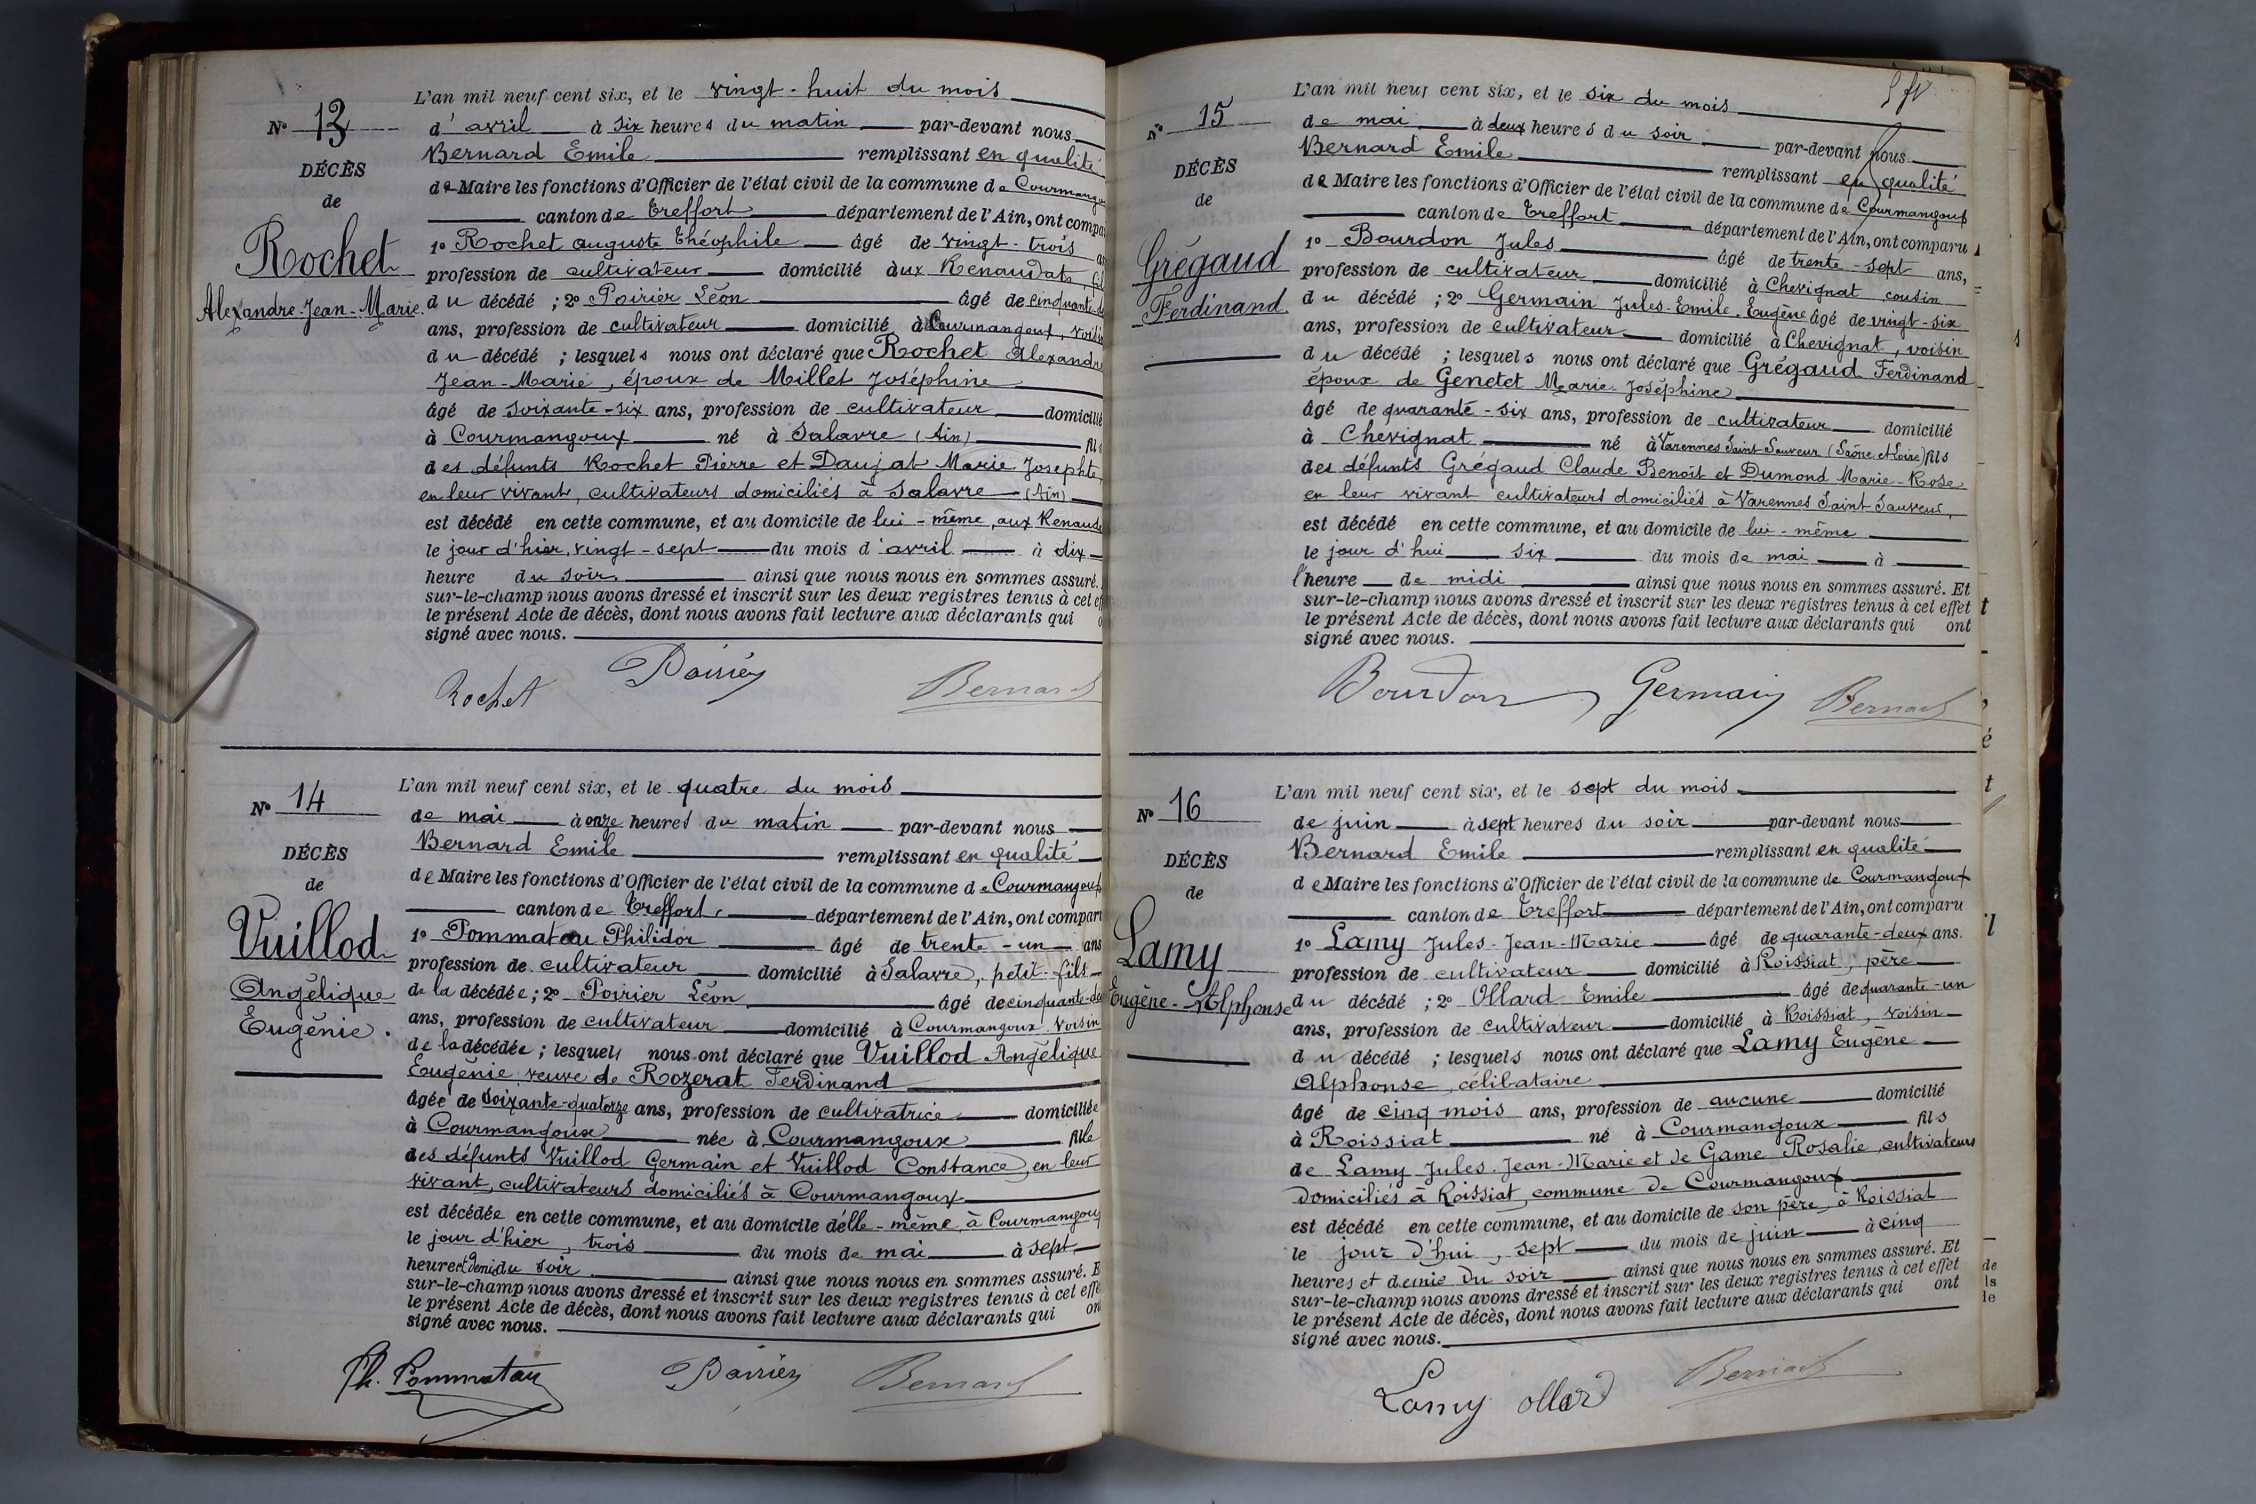 N° 13
DÉCÈS
de
Rochet
Alexandre-Jean-Marie.
L'an mil neuf cent six, et le vingt-huit du mois
d'avril à six heures du matin par-devant nous
Bernard Emile remplissant en qualité
de Maire les fonctions d'Officier de l'état civil de la commune de Courmangou
canton de Treffort département de l'Ain, ont compa
1° Rochet Auguste Théophile âgé de vingt-trois an
profession de cultivateur domicilié aux Renaudats, fils
du décédé ; 2° Poirier Léon âgé de cinquante-d
ans, profession de cultivateur domicilié à Courmangoux, voisin
du décédé ; lesquels nous ont déclaré que Rochet Alexandre
Jean-Marie, époux de Millet Joséphine
âgé de soixante-six ans, profession de cultivateur domicilié
à Courmangoux né à Salavre (Ain) fils
des défunts Rochet Pierre et Daujat Marie Josephte,
en leur vivant, cultivateurs domiciliés à Salavre (Ain)
est décédé en cette commune, et au domicile de lui-même, aux Renauda
le jour d'hier, vingt-sept du mois d'avril à dix
heure du soir ainsi que nous nous en sommes assuré.
sur-le-champ nous avons dressé et inscrit sur les deux registres tenus à cet eff
le présent Acte de décès, dont nous avons fait lecture aux déclarants qui o
signé avec nous.
Rochet Poirier Bernard
N° 14
DÉCÈS
de
Vuillod
Angélique
Eugénie.
L'an mil neuf cent six, et le quatre du mois
de mai à onze heures du matin par-devant nous
Bernard Emile remplissant en qualité
de Maire les fonctions d'Officier de l'état civil de la commune de Courmangoux
canton de Treffort, département de l'Ain, ont comparu
1° Pommatau Philidor âgé de trente-un ans
profession de cultivateur domicilié à Salavre, petit-fils
de la décédée ; 2° Poirier Léon âgé de cinquante-de
ans, profession de cultivateur domicilié à Courmangoux voisin
de la décédée ; lesquels nous ont déclaré que Vuillod Angélique
Eugénie, veuve de Rozerat Ferdinand
âgée de soixante-quatorze ans, profession de cultivatrice domiciliée
à Courmangoux née à Courmangoux fille
des défunts Vuillod Germain et Vuillod Constance, en leur
vivant, cultivateurs domiciliés à Courmangoux
est décédée en cette commune, et au domicile d'elle-même, à Courmangoux
le jour d'hier, trois du mois de mai à sept
heures et demie du soir ainsi que nous nous en sommes assuré. E
sur-le-champ nous avons dressé et inscrit sur les deux registres tenus à cet effe
le présent Acte de décès, dont nous avons fait lecture aux déclarants qui on
signé avec nous.
Ph. Pommatau Poirier Bernard
N° 15
DÉCÈS
de
Grégaud
Ferdinand.
L'an mil neuf cent six, et le six du mois
de mai à deux heures du soir par-devant nous
Bernard Emile remplissant en qualité
de Maire les fonctions d'Officier de l'état civil de la commune de Courmangoux
canton de Treffort département de l'Ain, ont comparu
1° Bourdon Jules âgé de trente-sept ans,
profession de cultivateur domicilié à Chevignat cousin
du décédé ; 2° Germain Jules-Emile-Eugène âgé de vingt-six
ans, profession de cultivateur domicilié à Chevignat, voisin
du décédé ; lesquels nous ont déclaré que Grégaud Ferdinand
époux de Genetet Marie-Joséphine
âgé de quarante-six ans, profession de cultivateur domicilié
à Chevignat né à Varennes Saint Sauveur (Saône et Loire) fils
des défunts Grégaud Claude Benoît et Dumond Marie-Rose
en leur vivant cultivateurs domiciliés à Varennes Saint Sauveur,
est décédé en cette commune, et au domicile de lui-même
le jour d'hui six du mois de mai à
l'heure de midi ainsi que nous nous en sommes assuré. Et
sur-le-champ nous avons dressé et inscrit sur les deux registres tenus à cet effet
le présent Acte de décès, dont nous avons fait lecture aux déclarants qui ont
signé avec nous.
Bourdon Germain Bernard
N° 16
DÉCÈS
de
Lamy
Eugène-Alphonse
L'an mil neuf cent six, et le sept du mois
de juin à sept heures du soir par-devant nous
Bernard Emile remplissant en qualité
de Maire les fonctions d'Officier de l'état civil de la commune de Courmangoux
canton de Treffort département de l'Ain, ont comparu
1° Lamy Jules-Jean-Marie âgé de quarante-deux ans.
profession de cultivateur domicilié à Roissiat, père
du décédé ; 2° Ollard Emile âgé de quarante-un
ans, profession de cultivateur domicilié à Roissiat, voisin
du décédé ; lesquels nous ont déclaré que Lamy Eugène
Alphonse, célibataire
âgé de cinq mois ans, profession de aucune domicilié
à Roissiat né à Courmangoux fils
de Lamy Jules-Jean-Marie et de Game Rosalie, cultivateurs
domiciliés à Roissiat, commune de Courmangoux
est décédé en cette commune, et au domicile de son père, à Roissiat
le jour d'hui, sept du mois de juin à cinq
heures et demie du soir ainsi que nous nous en sommes assuré. Et
sur-le-champ nous avons dressé et inscrit sur les deux registres tenus à cet effet
le présent Acte de décès, dont nous avons fait lecture aux déclarants qui ont
signé avec nous.
Lamy Ollard Bernard